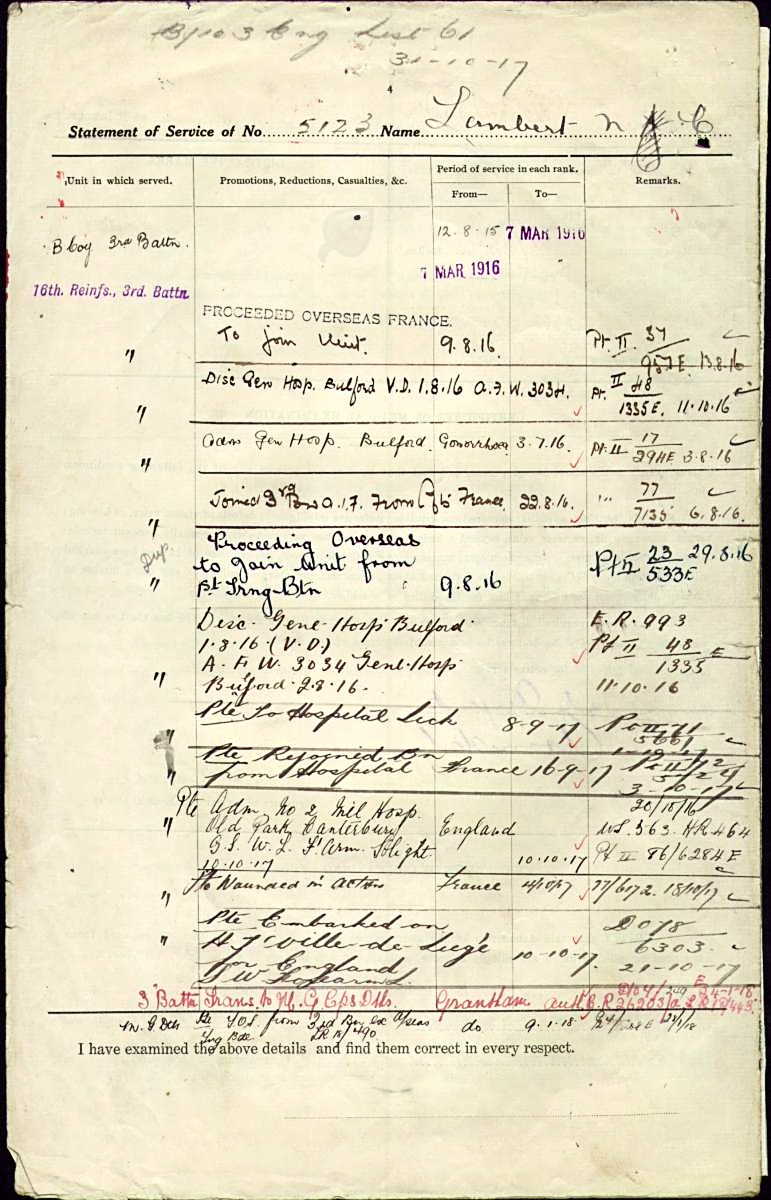 31-10-17
4
Statement of Service of No. 5123 Name Lambert N C
Unit in which served.
Promotions, Reductions, Casualties, &c.
Period of service in each rank.
From—
To—
Remarks.
B Coy 3rd Battn.
12.8.15
7 MAR 1916
7 MAR 1916
16th. Reinfs., 3rd. Battn
PROCEEDED OVERSEAS FRANCE.
To join Unit.
9.8.16.
Pt. II 37
957 E. 13.8.16
"
Disc Gen Hosp. Bulford V.D. 1.8.16 A.F.W. 3034.
Pt. II 48
1335 E. 11.10.16
"
Adm Gen Hosp. Bulford. Gonorrhoea
3.7.16.
Pt II 17
3.8.16
"
Joined 3rd Bn A.I.F. From France.
22.8.16.
" 77
7135 6.8.16.
"
Dup.
Proceeding Overseas
to Gain Unit from
1st Trng Btn
9.8.16
Pt II 23 29.8.16
533E
"
Disc. Genl Hosp Bulford
1.8.16 (V.D)
A.F.W. 3034 Genl Hosp
Bulford 2.8.16.
E.R. 993
Pt II 48 E
1335
11.10.16
"
Pte To Hospital Sick
8-9-17
"
Pte Rejoined Bn
from Hospital
France
16-9-17
3-10-17
"
Pte Adm. No 2 Mil Hosp.
Old Park Canterbury
G.S.W. L. F'Arm. Slight.
10.10.17
England
10.10.17
W.L. 563. HR 464
Pt II 86/6284 E
"
Wounded in action
France
4/10/17
77/6172. 18/10/17
"
Pte Embarked on
H.T. Ville-de-Liege
for England
10-10-17.
DO78
6303.
21-10-17
"
3 Battn Trans. to M.G. Cps Dtls.
Grantham
24-1-18
M.G Dtls
TOS from 3rd Bn ex A/seas
Tng Bde
do
9.1.18.
I have examined the above details and find them correct in every respect.